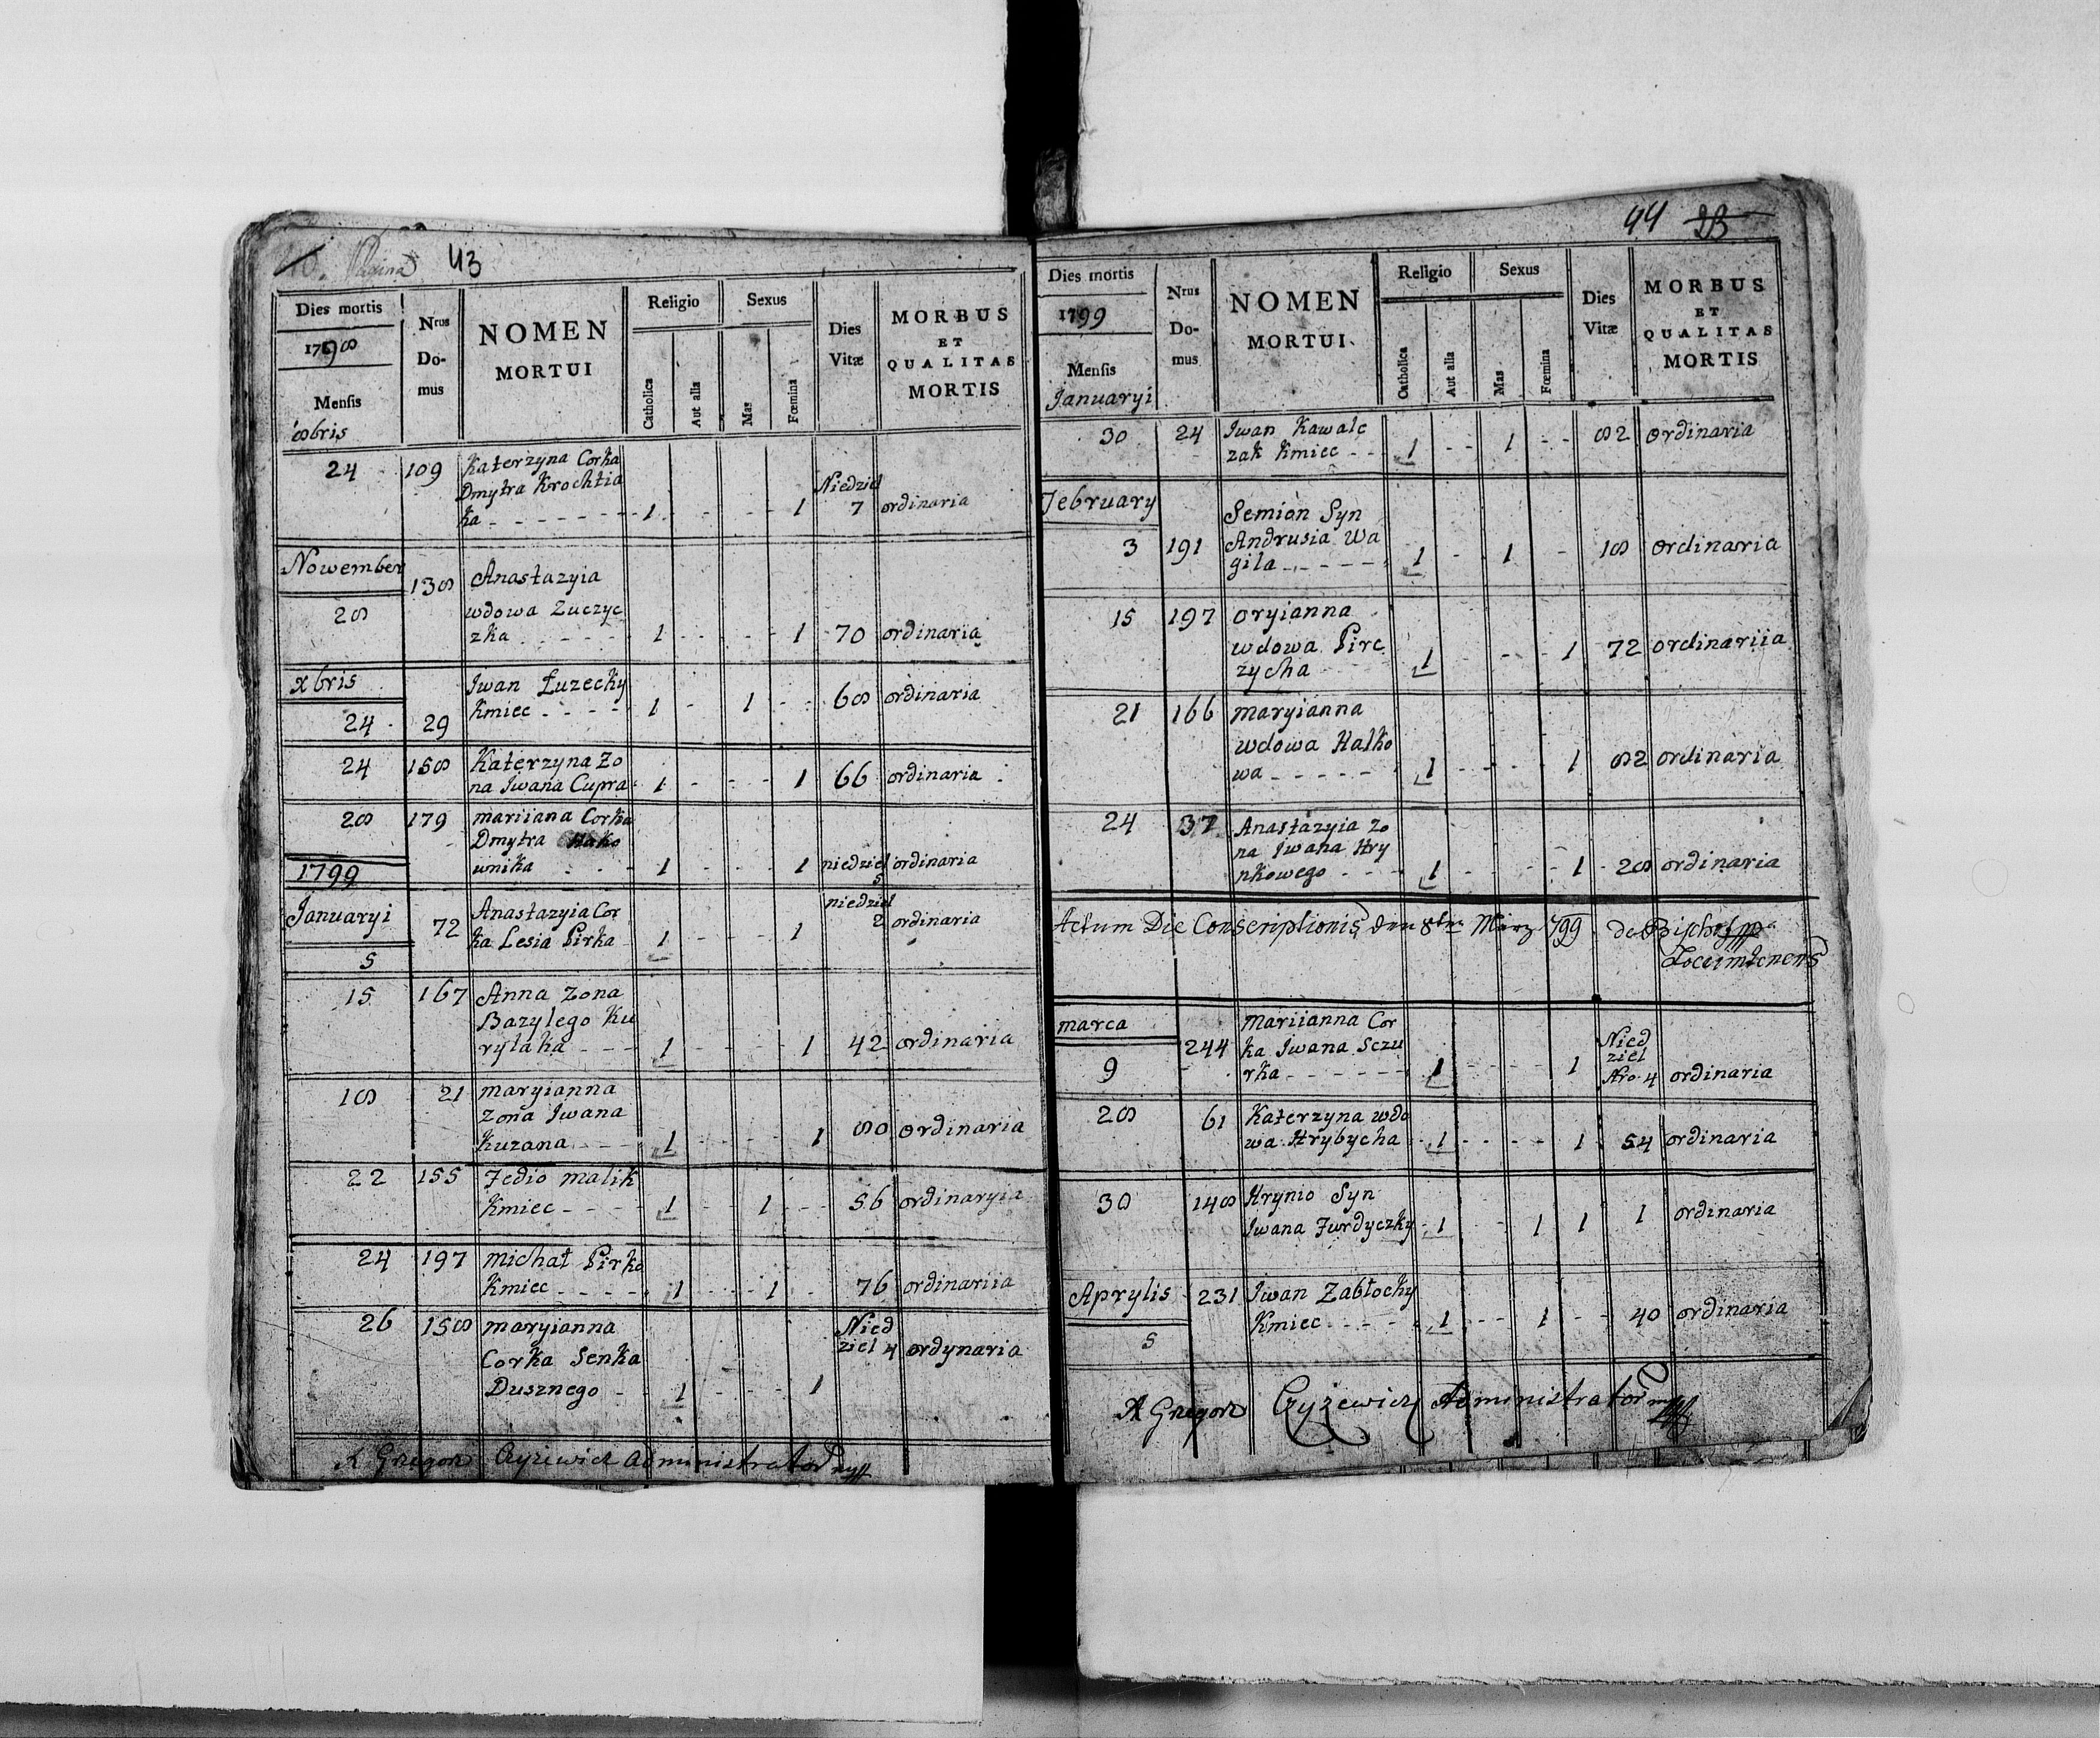 Pagina 43
Dies mortis
1798
Mensis
Nrus Domus
NOMEN
MORTUI
Religio
Catholica
Aut alia
Sexus
Mas
Fœmina
Dies
Vitæ
MORBUS
ET
QUALITAS
MORTIS
8bris
24 109 Katerzyna Corka
Dmytra Krochtia
ka - - - - - - - 1 - - - - 1 Niedziel 7 ordinaria
Nowember
28 138 Anastazyia
wdowa Zuczyc
zka - - - - 1 - - - - 1 70 ordinaria
xbris
24 29 Iwan Łuzecky
Kmiec - - - - 1 - 1 - - 68 ordinaria
24 158 Katerzyna Zo
na Iwana Cupra 1 - - - 1 66 ordinaria
28 179 mariiana Corka
Dmytra Hako
wnika - - - 1 - - - 1 niedziel 5 ordinaria
1799
Januaryi
5 72 Anastazyia Cor
ka Lesia Pirka 1 - - - 1 niedziel 2 ordinaria
15 167 Anna Zona
Bazylego Ku
rylaka - - - 1 - - - - 1 42 ordinaria
18 21 maryianna
Zona Iwana
Kuzana - - - 1 - - - - 1 80 ordinaria
22 155 Fedio malik
Kmiec - - - - 1 - - 1 - - 56 ordinaryia
24 197 michał Pirko
Kmiec - - - - 1 - - - 1 - 76 ordinariia
26 158 maryianna
Corka Senka
Dusznego - - 1 - - - - 1 Nied
ziel 4 ordynaria
X Gregori Czyzewicz administrator mpp
44 23
Dies mortis
1799
Mensis
Nrus Domus
NOMEN
MORTUI
Religio
Catholica
Aut alia
Sexus
Mas
Fœmina
Dies
Vitæ
MORBUS
ET
QUALITAS
MORTIS
Januaryi
30 24 Iwan Kawalc
zak Kmiec - - 1 - - 1 - - 82 ordinaria
February
3 191 Semion Syn
Andrusia Wa
gila - - - - - 1 - 1 - 18 ordinaria
15 197 oryianna
wdowa Pirc
zycha 1 - - - - 1 72 ordinariia
21 166 maryianna
wdowa Halko
wa - - - - - 1 - - - - 1 82 ordinaria
24 37 Anastazyia Zo
na Iwana Hry
nkowego - - - - 1 - - - - 1 28 ordinaria
Actum Die Conscriptionis den 8ten März 799
marca
9 244 Mariianna Cor
ka Iwana Sczu
rka - - - - - - 1 - - - - 1 Nied
ziel
Nro 4 ordinaria
28 61 Katerzyna wdo
wa Hrybycha - 1 - - - - 1 54 ordinaria
30 148 Hrynio Syn
Iwana Furdyczky - 1 - - 1 1 1 ordinaria
Aprylis
5 231 Iwan Zabłocky
Kmiec - - - - 1 - - - 1 - - 40 ordinaria
X Gregori Czyżewicz Administrator mpp